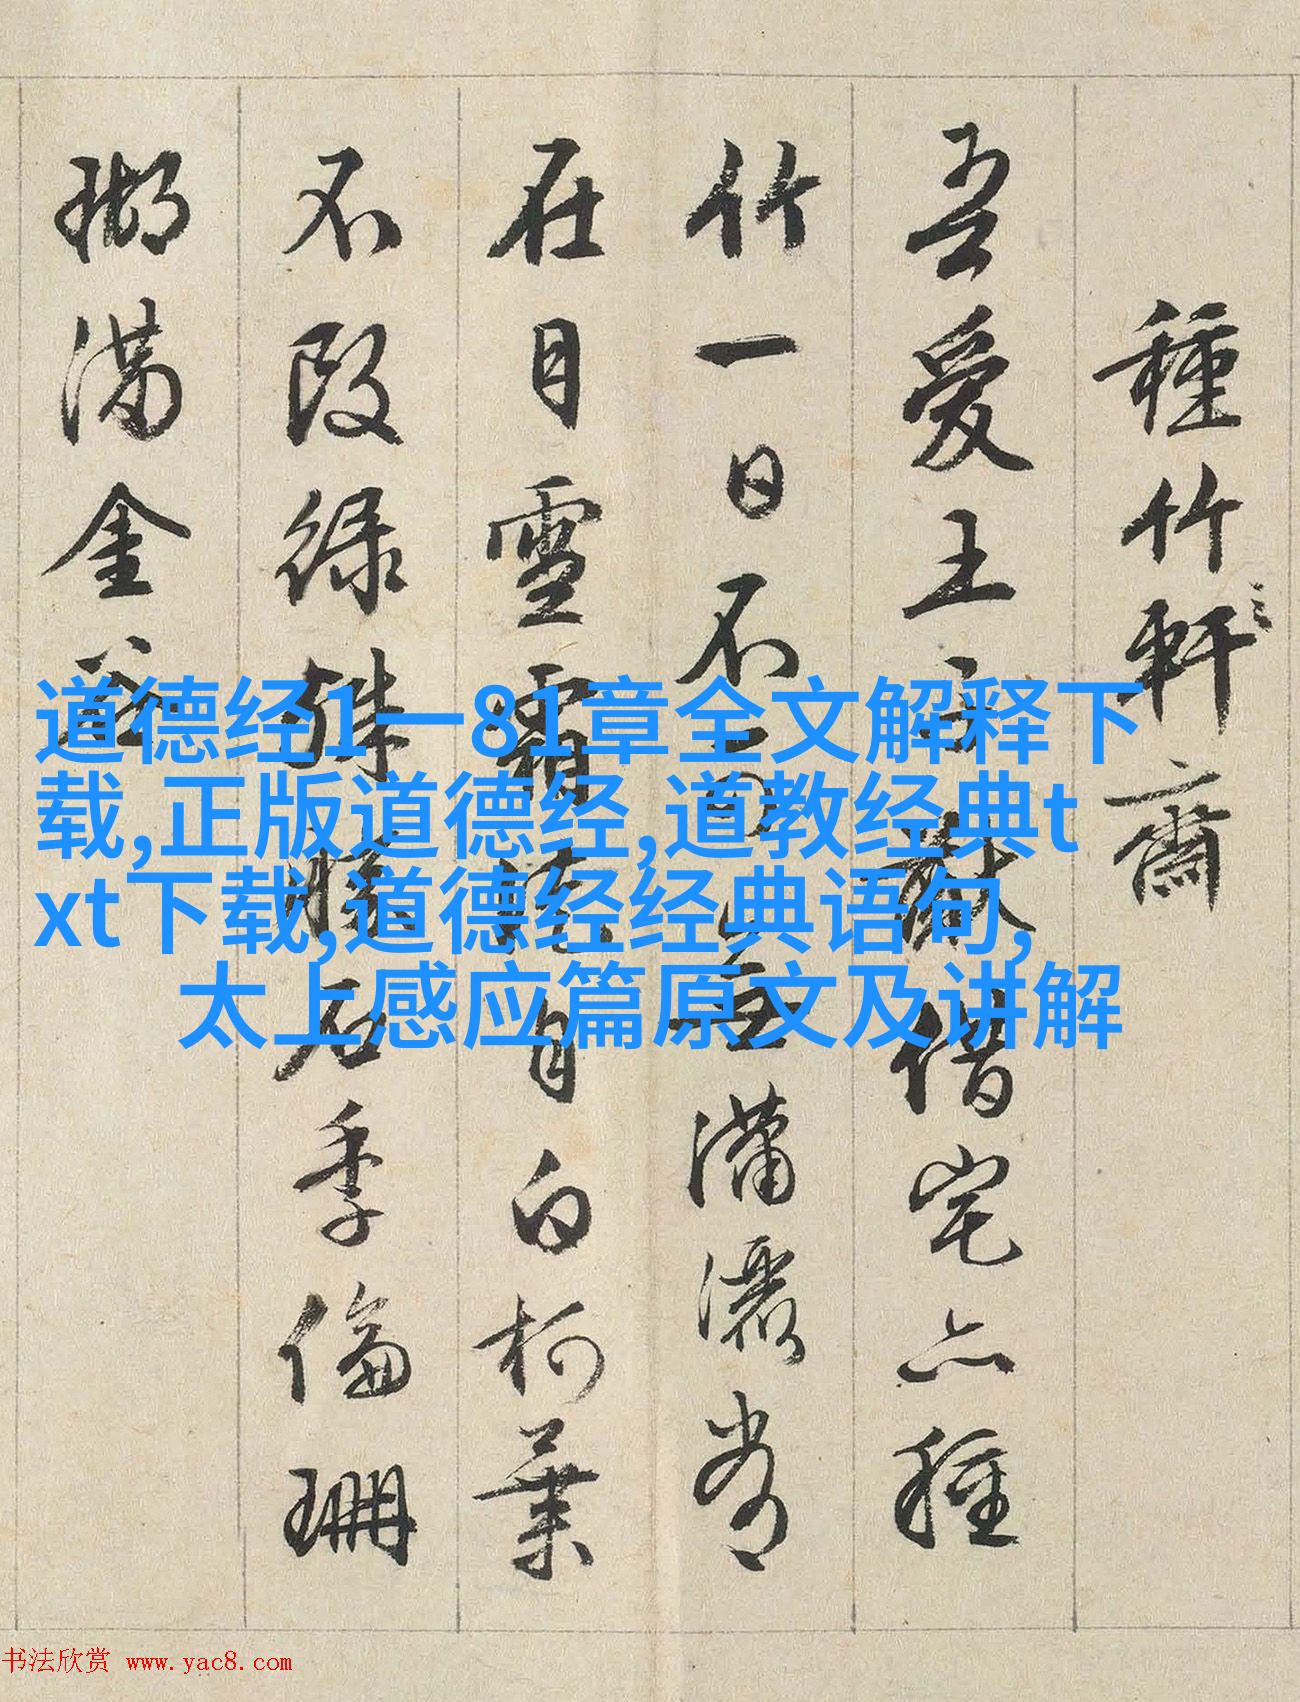 種竹軒齋
吾愛王子猷借宅亦種
竹一日不可無瀟灑常
在目雪霜徒自白柯葉
不改綠殊勝石季倫珊
瑚滿金谷
道德经1一81章全文解释下
载,正版道德经,道教经典t
xt下载,道德经经典语句,
太上感应篇原文及讲解
书法欣赏 www.yac8.com